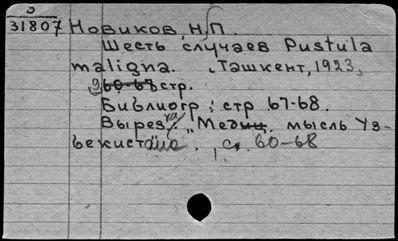 З
31807 Новиков, Н.П.
Шесть случаев Pustula
maligna. Ташкент, 1923,
9 60-68 стр.
Библиогр: стр 67-68.
Вырезка: "Медиц. мысль Уз-
бекистана. с. 60-68